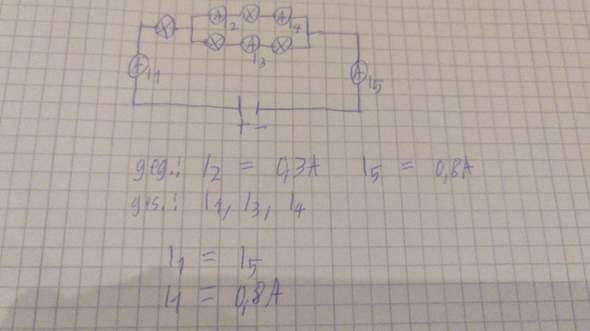 A I2 X A I4
X A I3 X
A I1
A I5
+ -
geg.: I2 = 0,3A I5 = 0,8A
ges.: I1, I3, I4
I1 = I5
I1 = 0,8A